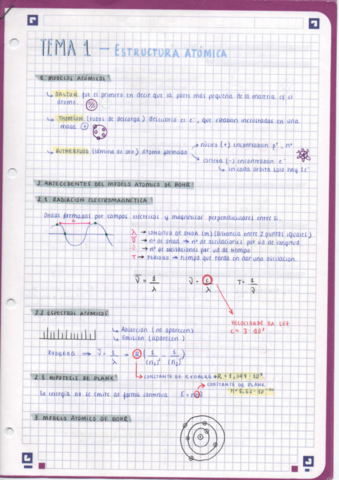 TEMA 1 — ESTRUCTURA ATÓMICA
1. MODELOS ATÓMICOS
DALTON: fue el primero en decir que la parte más pequeña de la materia es el
átomo.
THOMSON (tubos de descarga) descubrió el e⁻, que estaban incrustados en una
masa +
RUTHERFORD (lámina de oro) átomo formado
núcleo (+) encontraban p⁺, n⁰
corteza (-) encontraban e⁻
en cada órbita solo hay 1e⁻
2. ANTECEDENTES DEL MODELO ATÓMICO DE BOHR
2.1 RADIACIÓN ELECTROMAGNÉTICA
Ondas formadas por campos eléctricos y magnéticos perpendiculares entre sí.
λ → LONGITUD DE ONDA (m) (Distancia entre 2 puntos iguales)
ν̅ → nº de onda → nº de oscilaciones por ud de longitud
ν → nº de oscilaciones por ud de tiempo
T → PERIODO → tiempo que tarda en dar una oscilación
ν̅ = 1/λ ν = c/λ T = 1/ν
VELOCIDAD DE LA LUZ
c = 3·10⁸
2.2 ESPECTROS ATÓMICOS
Absorción (no aparecen)
Emisión (aparecen)
RYDBERG → ν̅ = 1/λ = R (1/(n₁)² - 1/(n₂)²)
CONSTANTE DE RYDBERG → R = 1,097·10⁷
2.3 HIPÓTESIS DE PLANK
CONSTANTE DE PLANK
h = 6,62·10⁻³⁴
La energía no se emite de forma continua E = h·ν
3. MODELO ATÓMICO DE BOHR